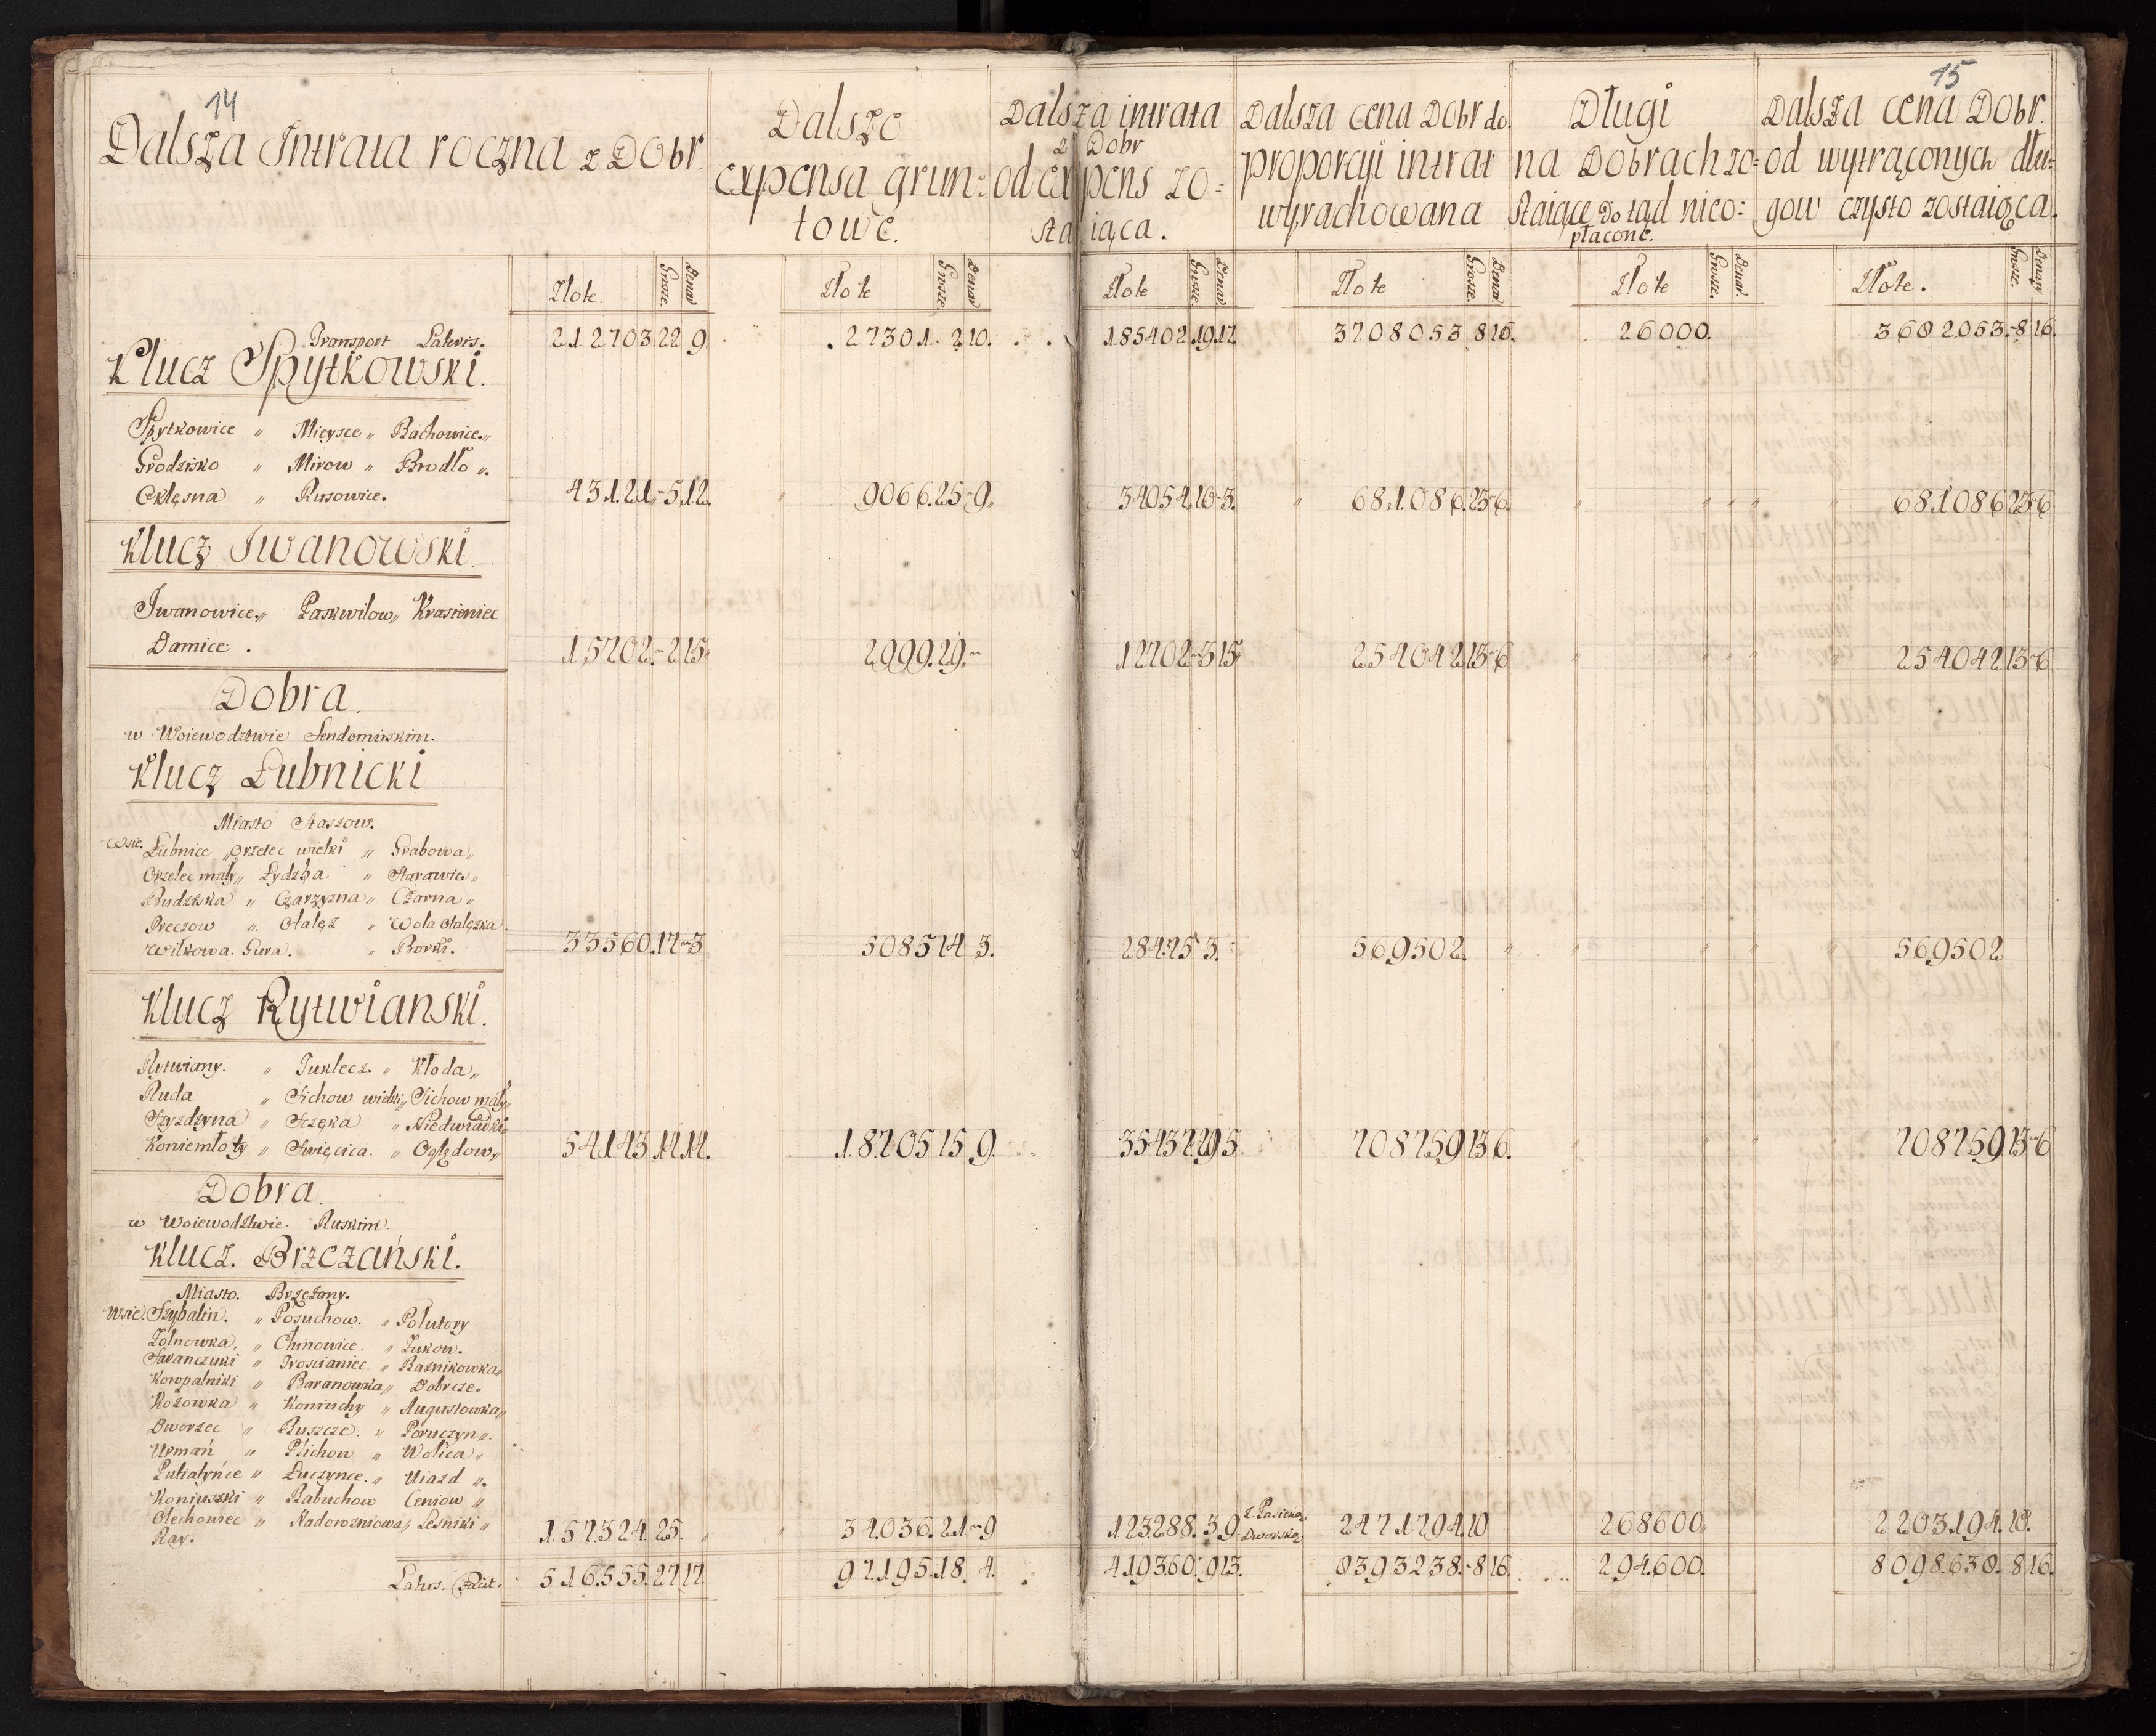 14
Dalsza Intrata roczna z Dobr.
Dalsze
expensa grun:
towe.
Dalsza intrata
z Dobr
od expens zo=
staiąca.
15
Dalsza cena Dobr do
proporcyi intrat
wyrachowana
Długi
na Dobrach zo=
staiące do tąd nieo:
płacone.
Dalsza cena Dobr.
od wytrąconych dłu=
gow czysto zostaiąca.
Złote. Grosze. Denar
Złote Grosze. Denar
Złote Grosze. Denar.
Złote Grosze. Denar
Złote Grosze. Denar.
Złote. Grosze. Denary
Transport Lateris. 212703 22 9 27301. 2 10. 185402. 19. 17. 3708053 8 16. 26000. 3682053. 8 16.
Klucz Spytkowski.
Spytkowice „ Mieysce „ Bachowice „
Grodzisko „ Mirow „ Brodło „.
Oklęsna „ Rusowice. 43121. 5. 12. 9066. 25 9. 34054. 10 3. 681086. 23 6. 681086 23 6
Klucz Iwanowski.
Iwanowice „ Paskwilow „ Krasieniec
Damice. 15702. 2 15 2999. 29. 12702 3 15 254042 13 6 254042 13 6
Dobra.
w Woiewodztwie Sendomirskim.
Klucz Łubnicki
Miasto Staszow.
Wsie. Łubnice „ Orzelec wielki „ Grabowa „
Orzelec mały „ Łydzba „ Starawies „
Budziska „ Czarzyzna „ Czarna „
Preczow „ Otalęż „ Wola Otalęzka
Wilkowa. Gura. „ Borki. 33560. 17 3 5085 14 3. 28475 3. 569502. 569502
Klucz Rytwianski.
Rytwiany. „ Tuklecz. „ Kłoda „
Ruda „ Sichow wielki „ Sichow mały „
Szyzdzyna „ Szczęka „ Niedwiadki „
Koniemłoty „ Swięcica. „ Oględow „ 54143. 14. 14. 18705 15 9. 35437. 29 5. 708759 13 6. 708759 13 6
Dobra.
w Woiewodztwie. Ruskim.
Klucz. Brzeżański.
Miasto. Brzeżany.
Wsie. Szybalin. „ Posuchow. „ Polutory
Żolnowka. „ Chinowice. „ Żukow.
Saranczuki „ Troscianiec. „ Baznikowka „
Koropatniki „ Baranowka „ Dobrcze.
Kożowka „ Koniuchy „ Augustowka „
Dworzec „ Buszcze. „ Poruczyn „
Urmań „ Plichow „ Wolica „
Putiatyńce „ Łuczynce. „ Uiazd „.
Koniuszki „ Babuchow Ceniow „
Olechowiec „ Nadorozniowa „ Leśniki „
Ray. 157324. 25. 34036. 21 9 123288. 3 9 z Pasieką Dworską. 2471794. 10 268600 2203194. 10.
Latus. Facit. 516.555. 27 17. 97.195. 18. 4. 419360. 9 13. 8393238. 8 16. 294.600. 8098.638. 8 16.